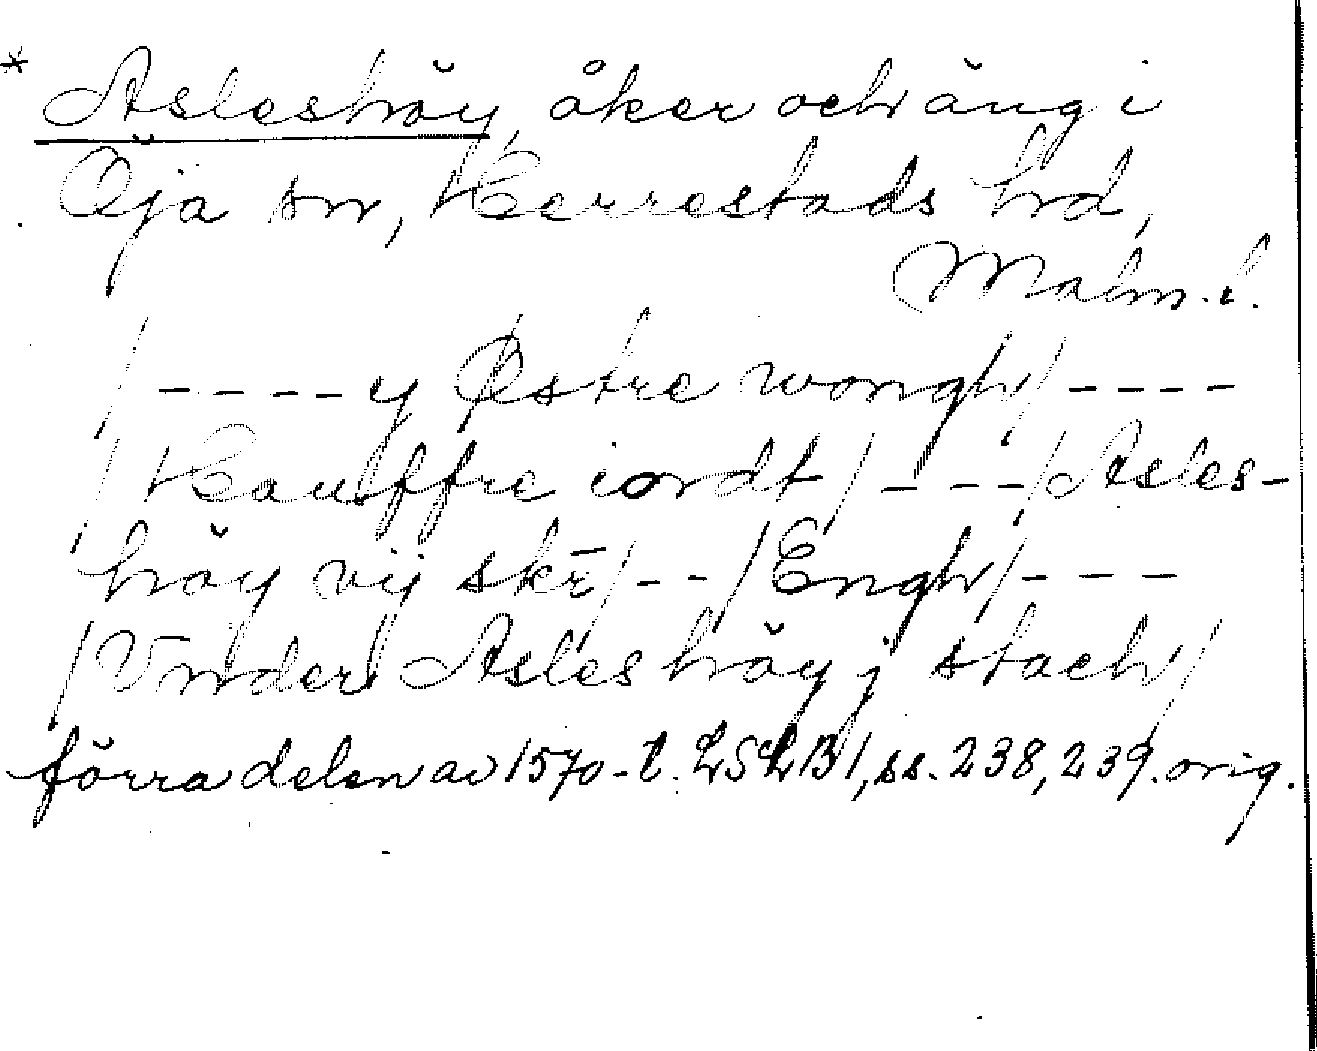 * Asleshöy, åker och äng i
Öja sn, Herrestads hd,
Malm. l.
/ - - - - y Østre wongh / - - - -
/ Hauffre iordt / - - - / Asles-
höy vij skr̄ / - - / Engh / - - -
/ Vnder Asles höy j stach /
förra delen av 1570-t. LSLB 1, ss. 238, 239. orig.